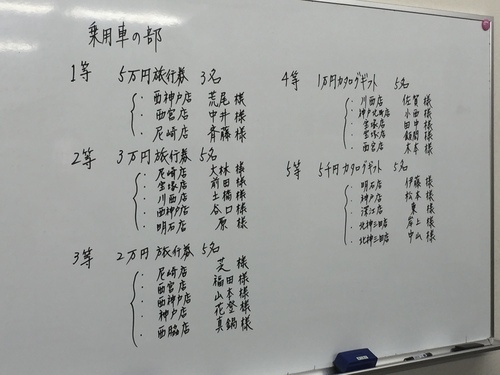 乗用車の部
1等 5万円旅行券 3名
・西神戸店 荒尾様
・西宮店 中井様
・尼崎店 斉藤様
2等 3万円旅行券 5名
・尼崎店 大林様
・宝塚店 前田様
・川西店 土橋様
・西神戸店 谷口様
・明石店 原様
3等 2万円旅行券 5名
・尼崎店 芝様
・西宮店 福田様
・西神戸店 山本様
・神戸店 様
・西脇店 真鍋様
4等 1万円カタログギフト 5名
・川西店 佐賀様
・神戸北町店 小西様
・宝塚店 田中様
・宝塚店 様
・西宮店 本様
5等 5千円カタログギフト 5名
・明石店 伊藤様
・神戸店 松本様
・深江店 東様
・北神三田店 岸上様
・北神三田店 中山様